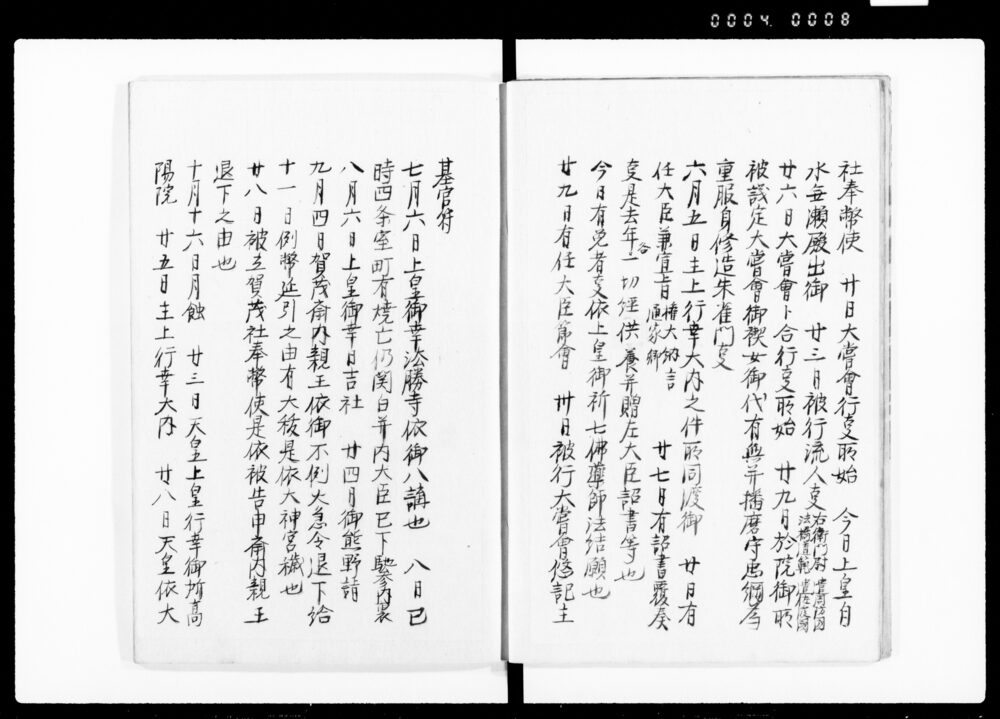 0004 0008
社奉幣使　廿日大嘗會行叓所始　今日上皇自
水無瀬殿出御　廿三日被行流人叓
右衛門尉
法橋直範
廿六日大嘗會卜合行叓所始　廿九日於院御所
被議定大嘗會御禊女御代有無并播磨守忠綱為
重服身修造朱雀門叓
六月五日主上行幸大内之件所同渡御　廿日有
任大臣兼宣旨
権大納言
廿七日有詔書覆奏
叓是去年一切経供養并贈左大臣詔書等也
今日有免者叓依上皇御祈七佛藥師法結願也
廿九日有任大臣節會　卅日被行大嘗會悠記主
基官符
七月六日上皇御幸法勝寺依御八講也　八日巳
時四条室町有焼亡仍関白并内大臣已下馳參内裏
八月六日上皇御幸日吉社　廿四日御熊野詣
九月四日賀茂斎内親王依御不例火急令退下給
十一日例幣延引之由有大祓是依大神宮穢也
廿八日被立賀茂社奉幣使是依被告申斎内親王
退下之由也
十月十六日月蝕　廿三日天皇上皇行幸御所高
陽院　廿五日主上行幸大内　廿八日天皇依大